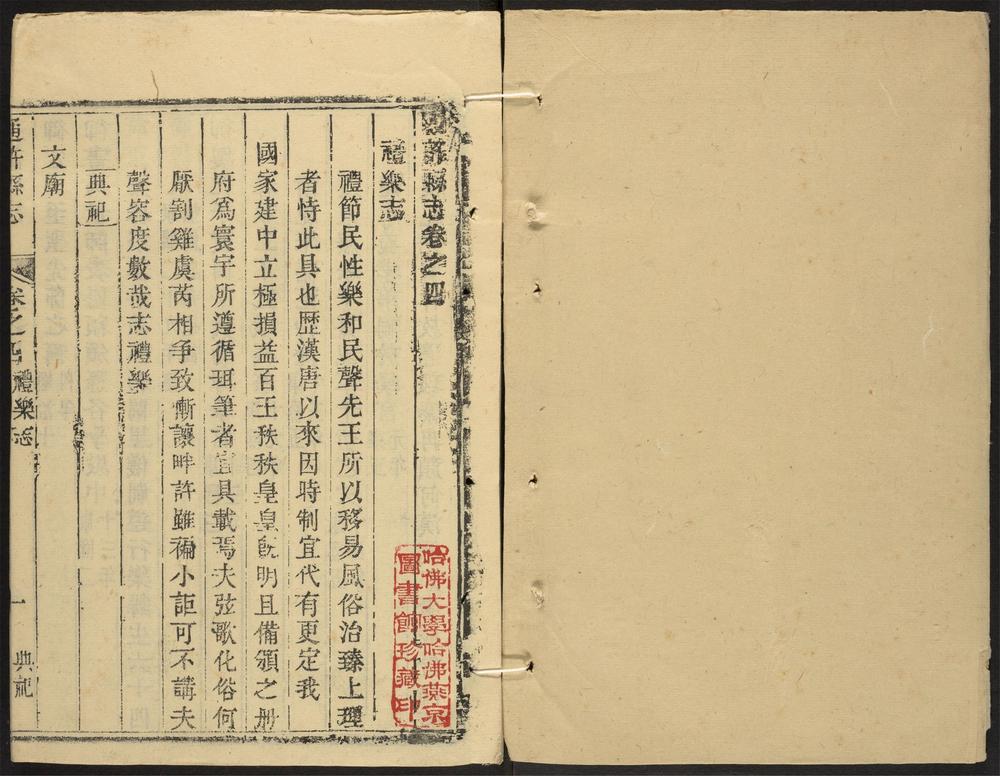 許縣志卷之四
禮樂志
禮節民性樂和民聲先王所以移易風俗治臻上理
者恃此具也歷漢唐以來因時制宜代有更定我
國家建中立極損益百王秩秩皇皇旣明且備頒之册
府爲寰宇所遵循珥筆者宜具載焉夫弦歌化俗何
厭割雞虞芮相爭致慚讓畔許雖褊小詎可不講夫
聲容度數哉志禮樂
典祀
文廟
通許縣志
卷之四
禮樂志
一
典祀
哈佛大學哈佛燕京
圖書館珍藏印